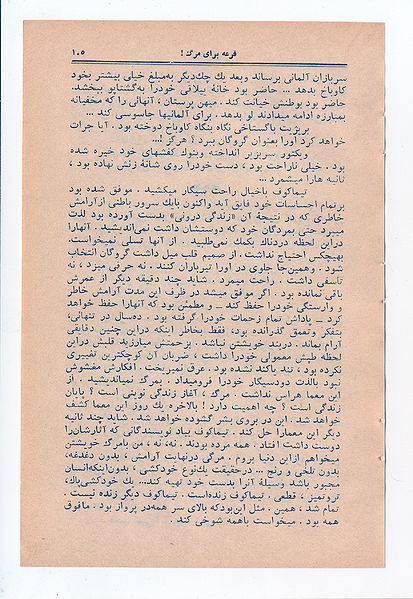 قرعه برای مرگ ! ۱۰۵
سربازان آلمانی برساند وبعد یك چك‌دیگر به‌مبلغ خیلی بیشتر بخود
کاوباخ بدهد ... حاضر بود خانهٔ ییلاقی خودرا به‌گشتاپو ببخشد.
حاضر بود بوطنش خیانت کند . میهن پرستان ، آنهائی را که مخفیانه
بمبارزه ادامه میدادند لو بدهد . برای آلمانیها جاسوسی کند ...
بریژیت باگستاخی نگاه بنگاه کاوباخ دوخته بود. آیا جرات
خواهد کرد اورا بعنوان گروگان ببرد ؟ هرگز !...
ویکتور سربزیر انداخته وبنوك کفشهای خود خیره شده
بود . خیلی ناراحت بود ، دست خودرا روی شانهٔ زنش نهاده بود ،
ثانیه هارا میشمرد ...
تیماکوف باخیال راحت سیگار میکشید . موفق شده بود
برتمام احساسات خود فایق آید واکنون بایك سرور باطنی ازآرامش
خاطری که در نتیجهٔ آن «زندگی درونی» بدست آورده بود لذت
میبرد حتی بمردگان خود که دوستشان داشت نمی‌اندیشید . آنهارا
دراین لحظه دردناك بکمك نمی‌طلبید . از آنها تسلی نمیخواست.
بهیچکس احتیاج نداشت . از صمیم قلب میل داشت گروگان انتخاب
شود . وهمین‌جا جلوی در اورا تیرباران کنند . نه حرفی میزد ، نه
تأسفی داشت . راحت میمرد . شاید چند دقیقه دیگر از عمرش
باقی نمانده بود . اگر موفق میشد در ظرف این مدت آرامش خاطر
و وارستگی خودرا حفظ کند ــ و مطمئن بود که آنهارا حفظ خواهد
کرد ــ پاداش تمام زحمات خودرا گرفته بود. ده‌سال در تنهائی،
بتفکر وتعمق گذرانده بود، فقط بخاطر اینکه دراین چنین دقایقی
آرام بماند. دربند خویشتن نباشد. بزحمتش میارزید قلبش دراین
لحظه طپش معمولی خودرا داشت ، ضربان آن کوچکترین تغییری
نکرده بود ، تند یاکند نشده بود. عرق نمیریخت . افکارش مغشوش
نبود بالذت دودسیگار خودرا فرومیداد . بمرگ نمیاندیشید . از
این معما هراس نداشت . مرگ ، آغاز زندگی نوینی است ؟ پایان
زندگی است ؟ چه اهمیت دارد ! بالاخره یك روز این معما کشف
خواهد شد . این در بروی بشر گشوده خواهد شد. شاید چند ثانیه
دیگر این معمارا حل کند . تیماکوف بیاد نویسندگانی که آثارشان‌را
دوست داشت افتاد . همه مرده بودند . نه، نه ، من بامرگ خویشتن
میخواهم ازاین دنیا بروم . مرگی درنهایت آرامش ، بدون دغدغه،
بدون تلخی و رنج ... درحقیقت یك‌نوع خودکشی ، بدون‌اینکه‌انسان
مجبور باشد وسیلهٔ آنرا بدست خود تهیه کند... یك خودکشی‌پاك،
تروتمیز ، قطعی . تیماکوف زنده‌است . تیماکوف دیگر زنده نیست .
تمام شد ، همین . مثل این‌بودکه بالای سر همه‌در پرواز بود. مافوق
همه بود . میخواست باهمه شوخی کند .